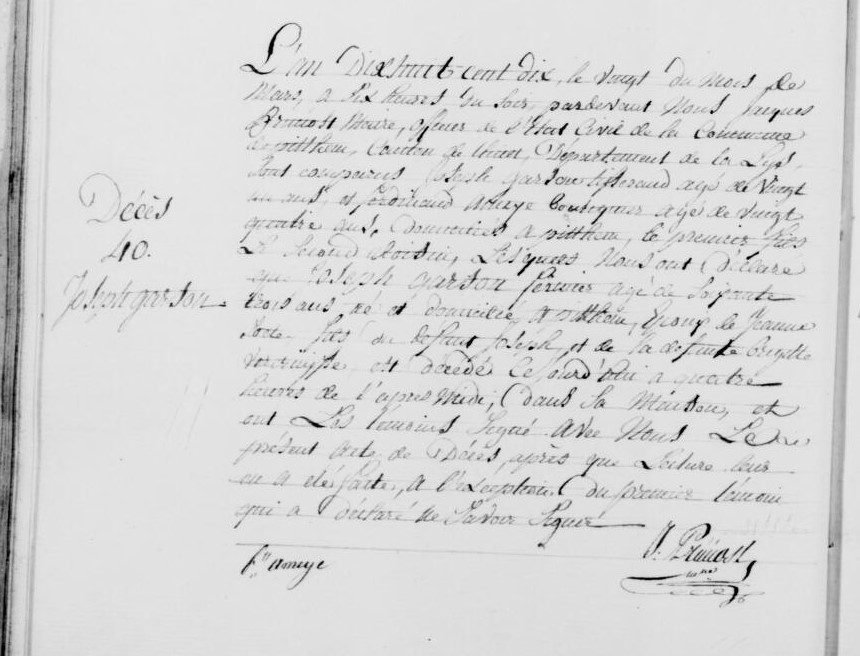 Décès
40.
Joseph garston
L'an Dixhuit cent dix, le vingt du mois de
Mars, a six heures du soir, pardevant Nous Jacques
Prenost Maire, officier de l'état Civil de la Commune
de pitthem, Canton de thielt, Département de la Lys,
sont comparus Joseph garston tisserand agé de vingt
un ans, et ferdinand ameye agé de vingt
quatre ans, domiciliés a pitthem, le premier fils
Le second voisin, Lesquels Nous ont Déclaré
que Joseph garston fermier agé de soixante
trois ans né et domicilié a pitthem, Epoux de Jeanne
fils du defunt Joseph, et de la defunte brigitte
est décédé Cejourd'hui a quatre
heures de l'après midi, Dans sa Maison, et
ont Les témoins signé avec Nous Le
présent acte de Décès, après que Lecture leur
en a été faite, a l'exception du premier témoin
qui a déclaré ne savoir signer
J. Prenost
f. ameye